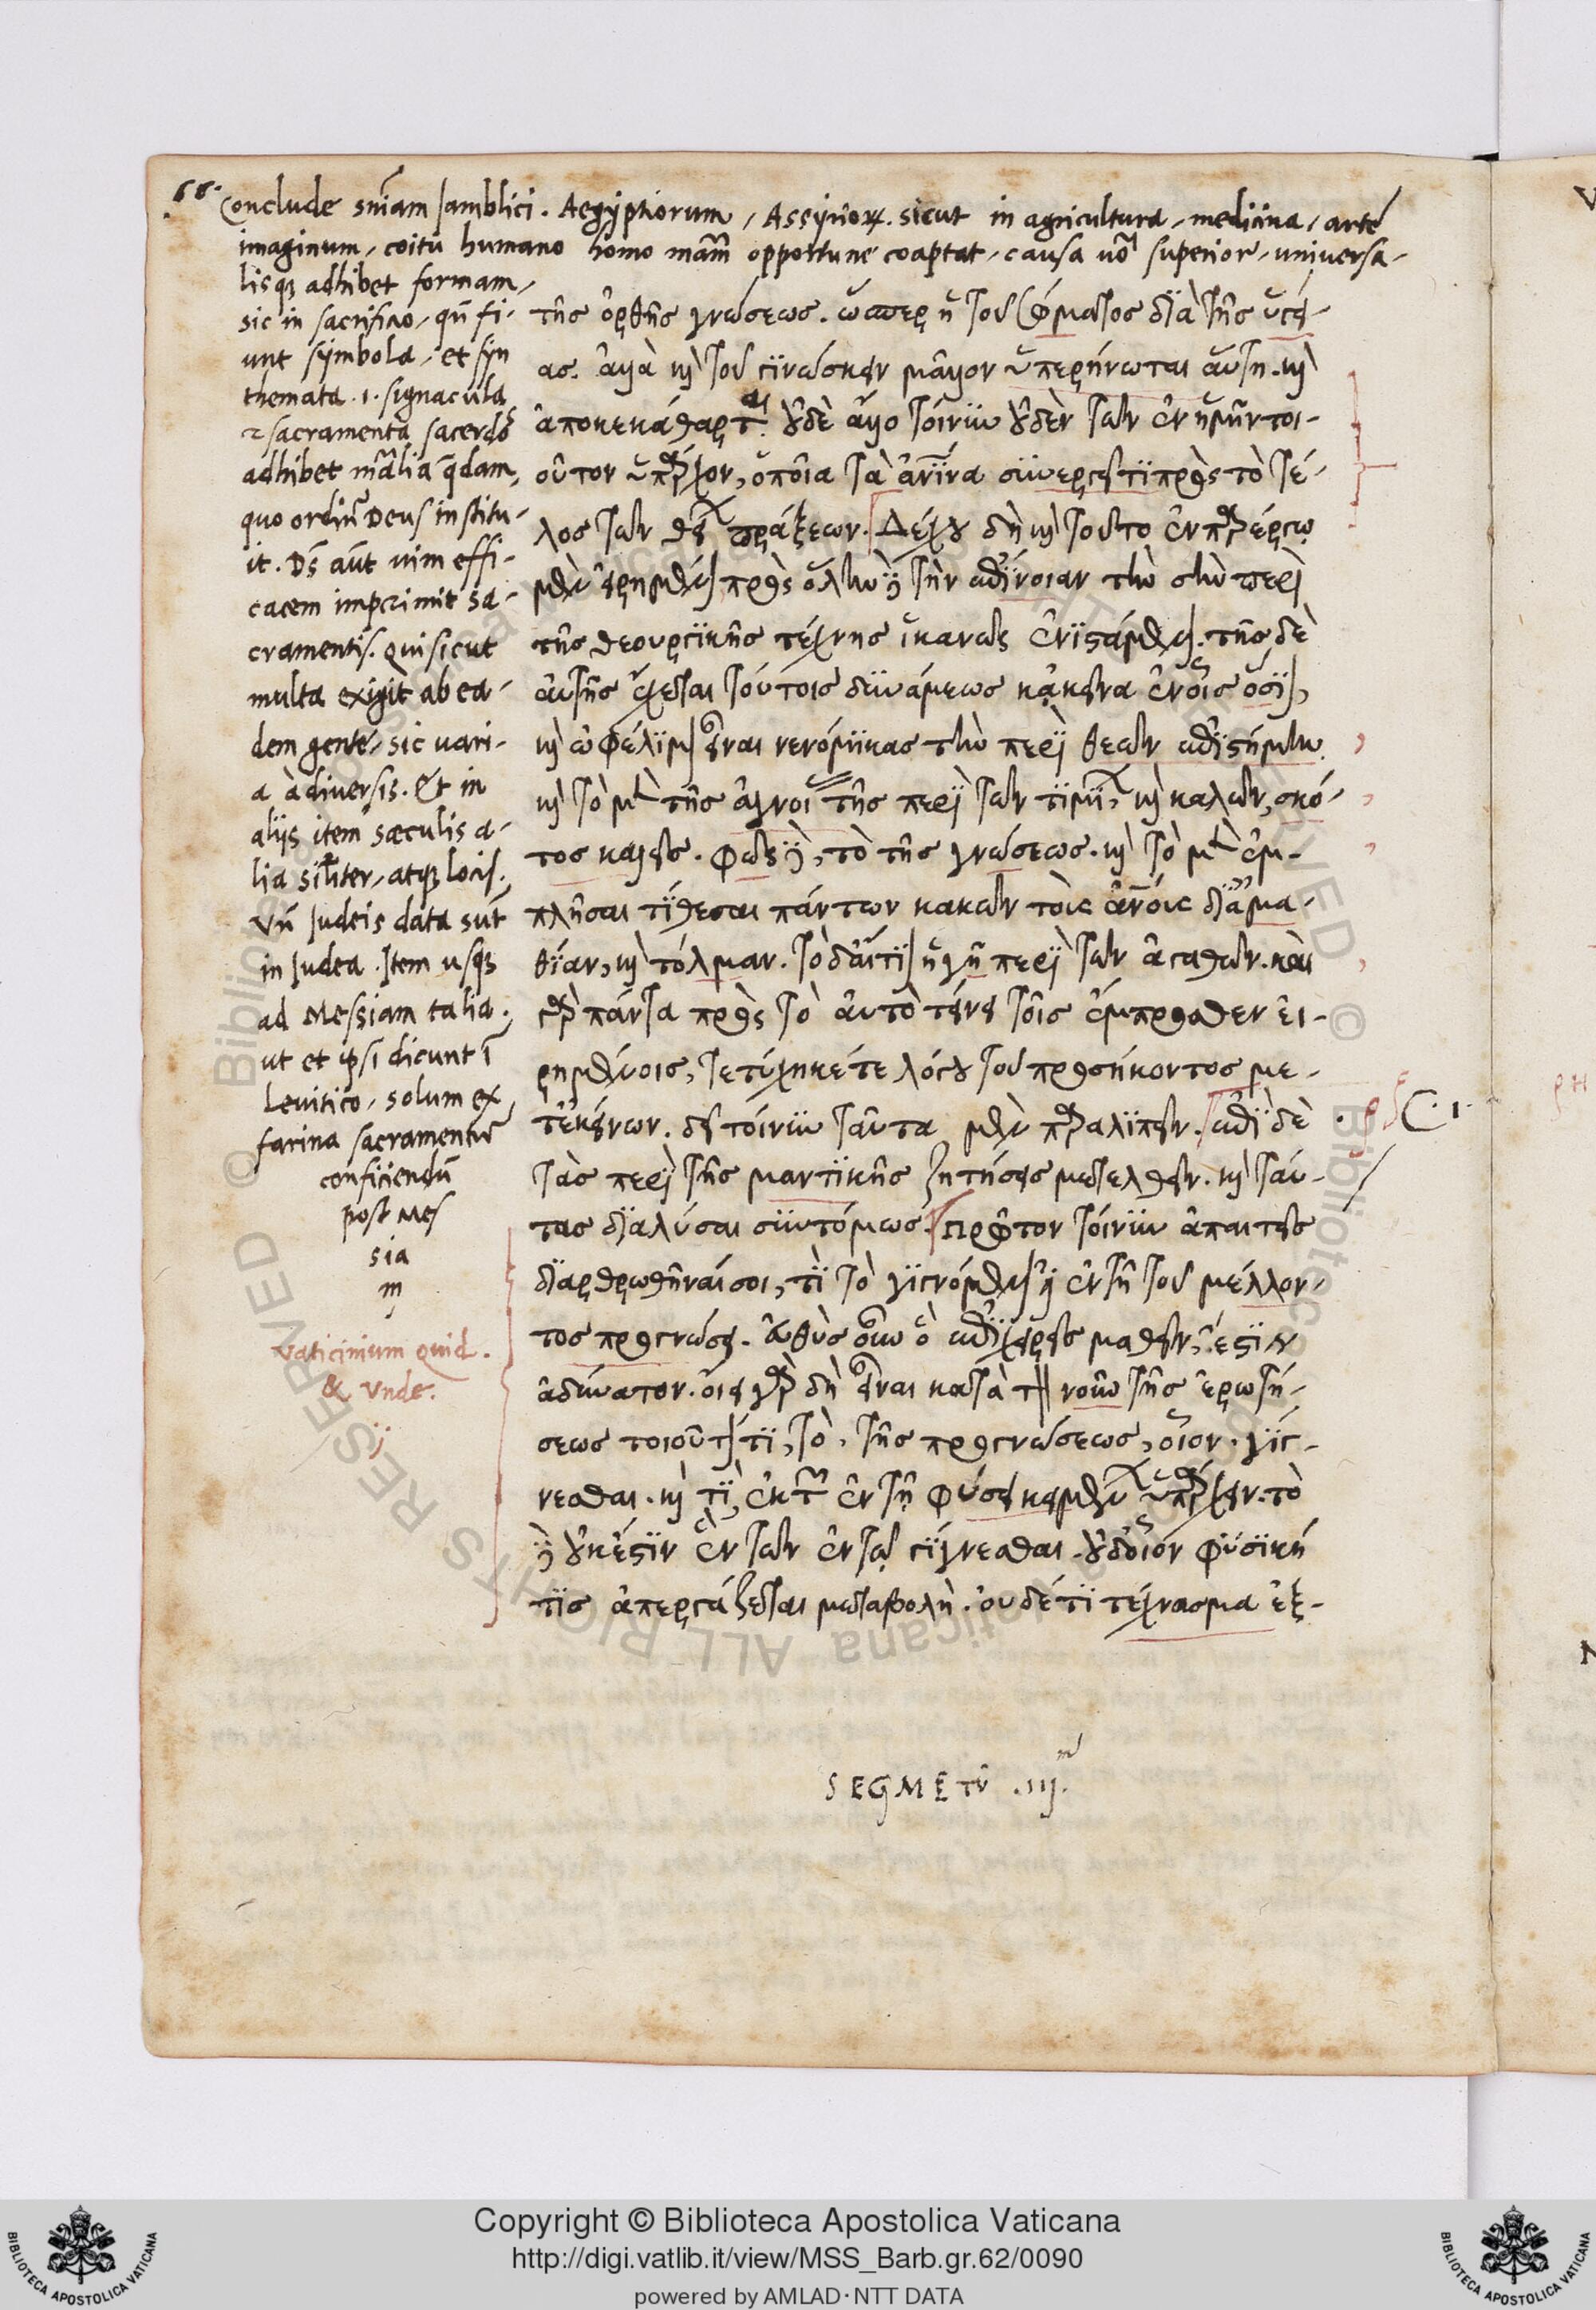 68.
Conclude sniam Jamblici. Aegyptiorum, Assyrior. sicut in agricultura, medicina, arte
imaginum, coitu humano homo mam opportune coaptat, causa uo superior, universa-
lisq; adhibet formam,
sic in sacrificio, qn fi-
unt symbola, et syn
themata .i. signacula
sacramenta sacerdo
adhibet malia qdam,
quo ordine Deus institu-
it. Ds aut uim effi-
cacem imprimit sa-
cramentis. qui sicut
multa exigit ab ea-
dem gente, sic uari-
a a diversis. Et in
aliis item sæculis a-
lia siliter, atq; locis.
Vn Judeis data sut
in Judea. Item usq;
ad Messiam talia.
ut et ipsi dicunt i
Levitico, solum ex
farina sacramentu
conficiendu
post Mes
sia
m
Vaticinium quid.
& Unde.
τῆς ὀρθῆς γνώσεως. ὥσπερ ἡ τοῦ σώματος διὰ τῆς ἁγνεί-
ας. ἀλλὰ καὶ τοῦ γινώσκειν μᾶλλον ὑπερήνωται αὕτη. καὶ
ἀποκεκάθαρται. οὐδὲ ἄλλο τοίνυν οὐδὲν τῶν ἐν ἡμῖν τοι-
οῦτον ὑπάρχον, ὁποῖα τὰ ἀνθρώπινα συνεργεῖ τι πρὸς τὸ τέ-
λος τῶν θείων πράξεων. Δέχου δὴ καὶ τοῦτο ἐν παρέργῳ
μὲν εἰρημένον πρὸς ὅλην δὲ τὴν ἐπίνοιαν τὴν σὴν περὶ
τῆς θεουργικῆς τέχνης ἱκανῶς ἐνιστάμενον. τῆς δὲ
αὐτῆς ἔχεται τούτοις δυνάμεως κἀκεῖνα ἐν οἷς ὅσιον,
καὶ ὠφέλιμον εἶναι νενόμικας τὴν περὶ θεῶν ἐπιστήμην
καὶ τὸ μὲν τῆς ἀγνοίας τῆς περὶ τῶν τιμίων καὶ καλῶν, σκό-
τος καλεῖς. φῶς δὲ, τὸ τῆς γνώσεως. καὶ τὸ μὲν ἐμ-
πλῆσαι τίθεσαι πάντων κακῶν τοὺς ἀνθρώπους δι' ἀμα-
θίαν, καὶ τόλμαν. τὸ δ' αἴτιον ἡγῇ περὶ τῶν ἀγαθῶν. καὶ
γὰρ πάντα πρὸς τὸ αὐτὸ τείνει τοῖς ἔμπροσθεν εἰ-
ρημένοις, τετύχηκέ τε λόγου τοῦ προσήκοντος με-
τ' ἐκείνων. δεῖ τοίνυν ταῦτα μὲν παραλιπεῖν. ἐπὶ δὲ
τὰς περὶ τῆς μαντικῆς ζητήσεις μετελθεῖν. καὶ ταύ-
τας διαλῦσαι συντόμως. Πρῶτον τοίνυν ἀπαιτεῖς
διαρθρωθῆναί σοι, τί τὸ γιγνόμενόν ἐστιν ἐν τῇ τοῦ μέλλον-
τος προγνώσει. εὐθὺς οὖν ὃ ἐπιχειρεῖς μαθεῖν, ἔστιν
ἀδύνατον. οἴει γὰρ δὴ εἶναι κατὰ τὸν νοῦν τῆς ἐρωτή-
σεως τοιοῦτόν τι, τὸ, τῆς προγνώσεως, οἷον. γίγ-
νεσθαι. καὶ τὶ, ἐκ τῶν ἐν τῇ φύσει κειμένων ὑπάρχειν. τὸ
δὲ οὐκ ἔστιν ἓν τῶν ἐν τῷ γίγνεσθαι. οὐδ' οἷον φυσική
τις ἀπεργάζεται μεταβολὴ. οὐδέ τι τέχνασμα ἐξ-
C.1.
SEGMETU .iij.
Copyright © Biblioteca Apostolica Vaticana
http://digi.vatlib.it/view/MSS_Barb.gr.62/0090
powered by AMLAD · NTT DATA